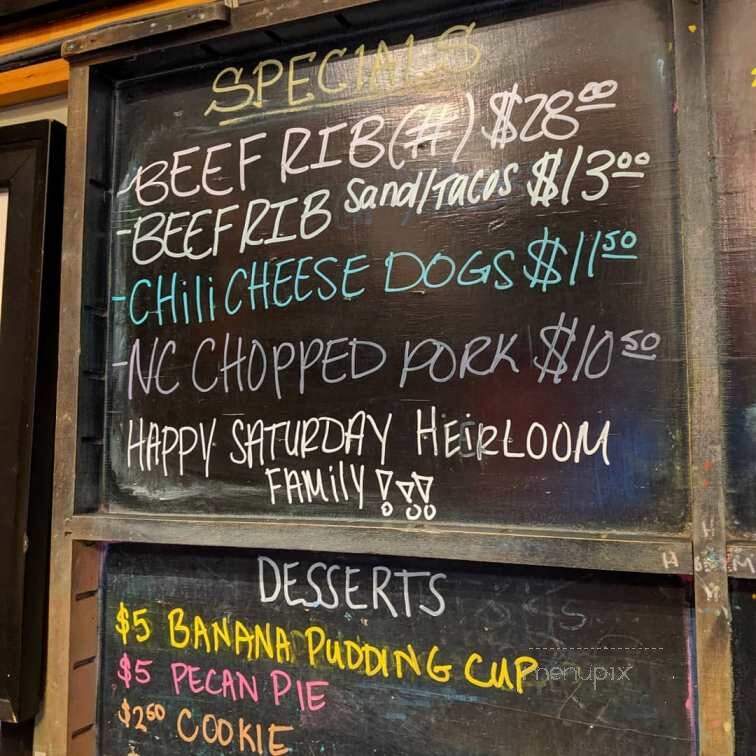 SPECIALS
-BEEF RIB (#) $28.00
-BEEF RIB Sand/Tacos $13.00
-CHili CHEESE DOGS $11.50
-NC CHOPPED PORK $10.50
HAPPY SATURDAY HEiRLOOM
FAMiLY!!!
DESSERTS
$5 BANANA PUDDING CUP
$5 PECAN PIE
$2.60 COOKIE
menupix